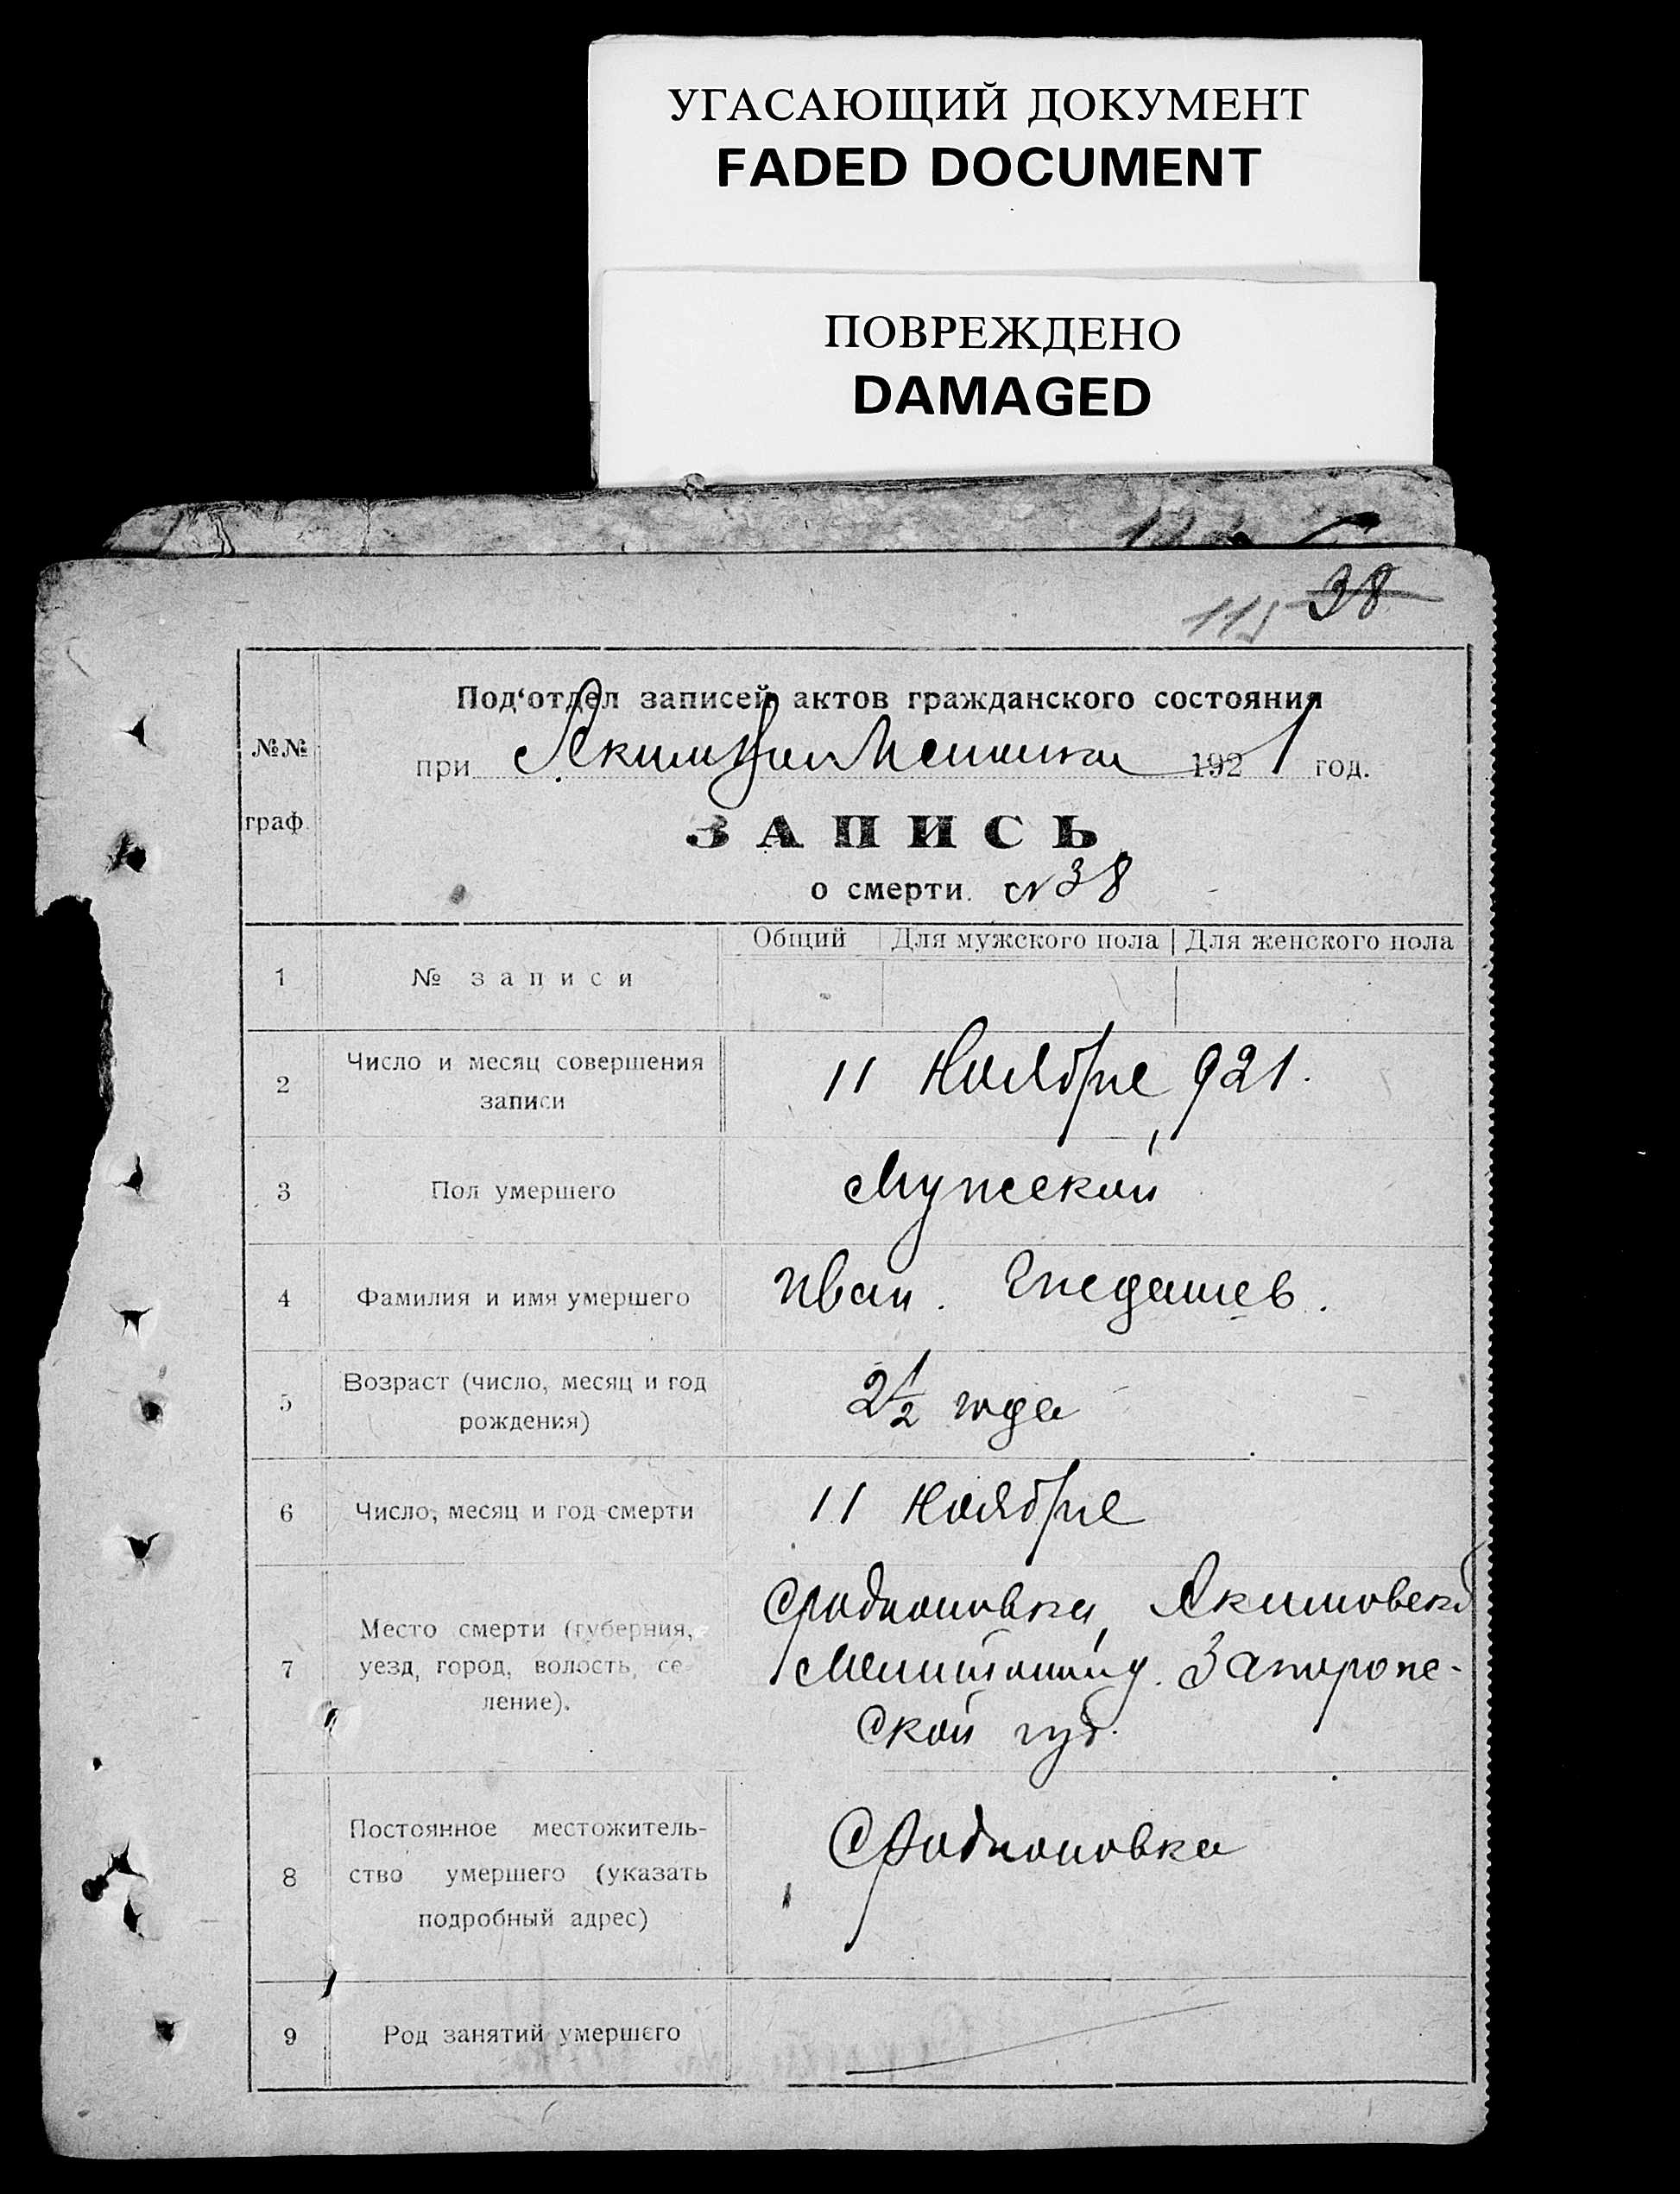 УГАСАЮЩИЙ ДОКУМЕНТ
FADED DOCUMENT
ПОВРЕЖДЕНО
DAMAGED
115 38
№№ граф.
Под‘отдел записей актов гражданского состояния
при 1921 год.
ЗАПИСЬ
о смерти. № 38
Общий Для мужского пола Для женского пола
1 № записи
2 Число и месяц совершения
записи
11 Ноября 921.
3 Пол умершего Мужской
4 Фамилия и имя умершего Иван.
5 Возраст (число, месяц и год
рождения)
2 1/2 года
6 Число, месяц и год смерти 11 Ноября
7 Место смерти (губерния,
уезд, город, волость, се-
ление).
Родионовка, Якимовск
у. Запорож-
ской губ.
8 Постоянное местожитель-
ство умершего (указать
подробный адрес)
Родионовка
9 Род занятий умершего